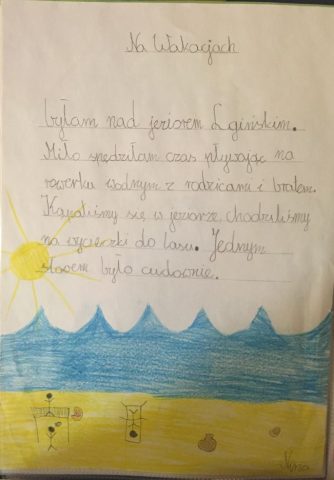 Na Wakacjach
byłam nad jeziorem Lgińskim.
Miło spędziłam czas pływając na
rowerku wodnym z rodzicami i bratem.
Kąpaliśmy się w jeziorze, chodziliśmy
na wycieczki do lasu. Jednym
słowem było cudownie.